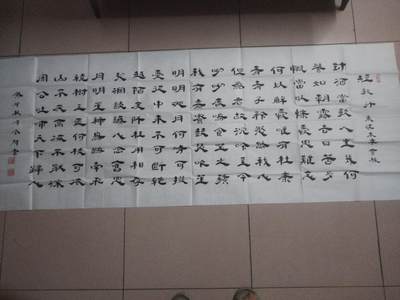 短歌行 東漢末曹操
對酒當歌人生幾何
譬如朝露去日苦多
慨當以慷憂思難忘
何以解憂唯有杜康
青青子衿悠悠我心
但為君故沉吟至今
呦呦鹿鳴食野之苹
我有嘉賓鼓瑟吹笙
明明如月何時可掇
憂從中來不可斷絕
越陌度阡枉用相存
契闊談讌心念舊恩
月明星稀烏鵲南飛
繞樹三匝何枝可依
山不厭高水不厭深
周公吐哺天下歸心